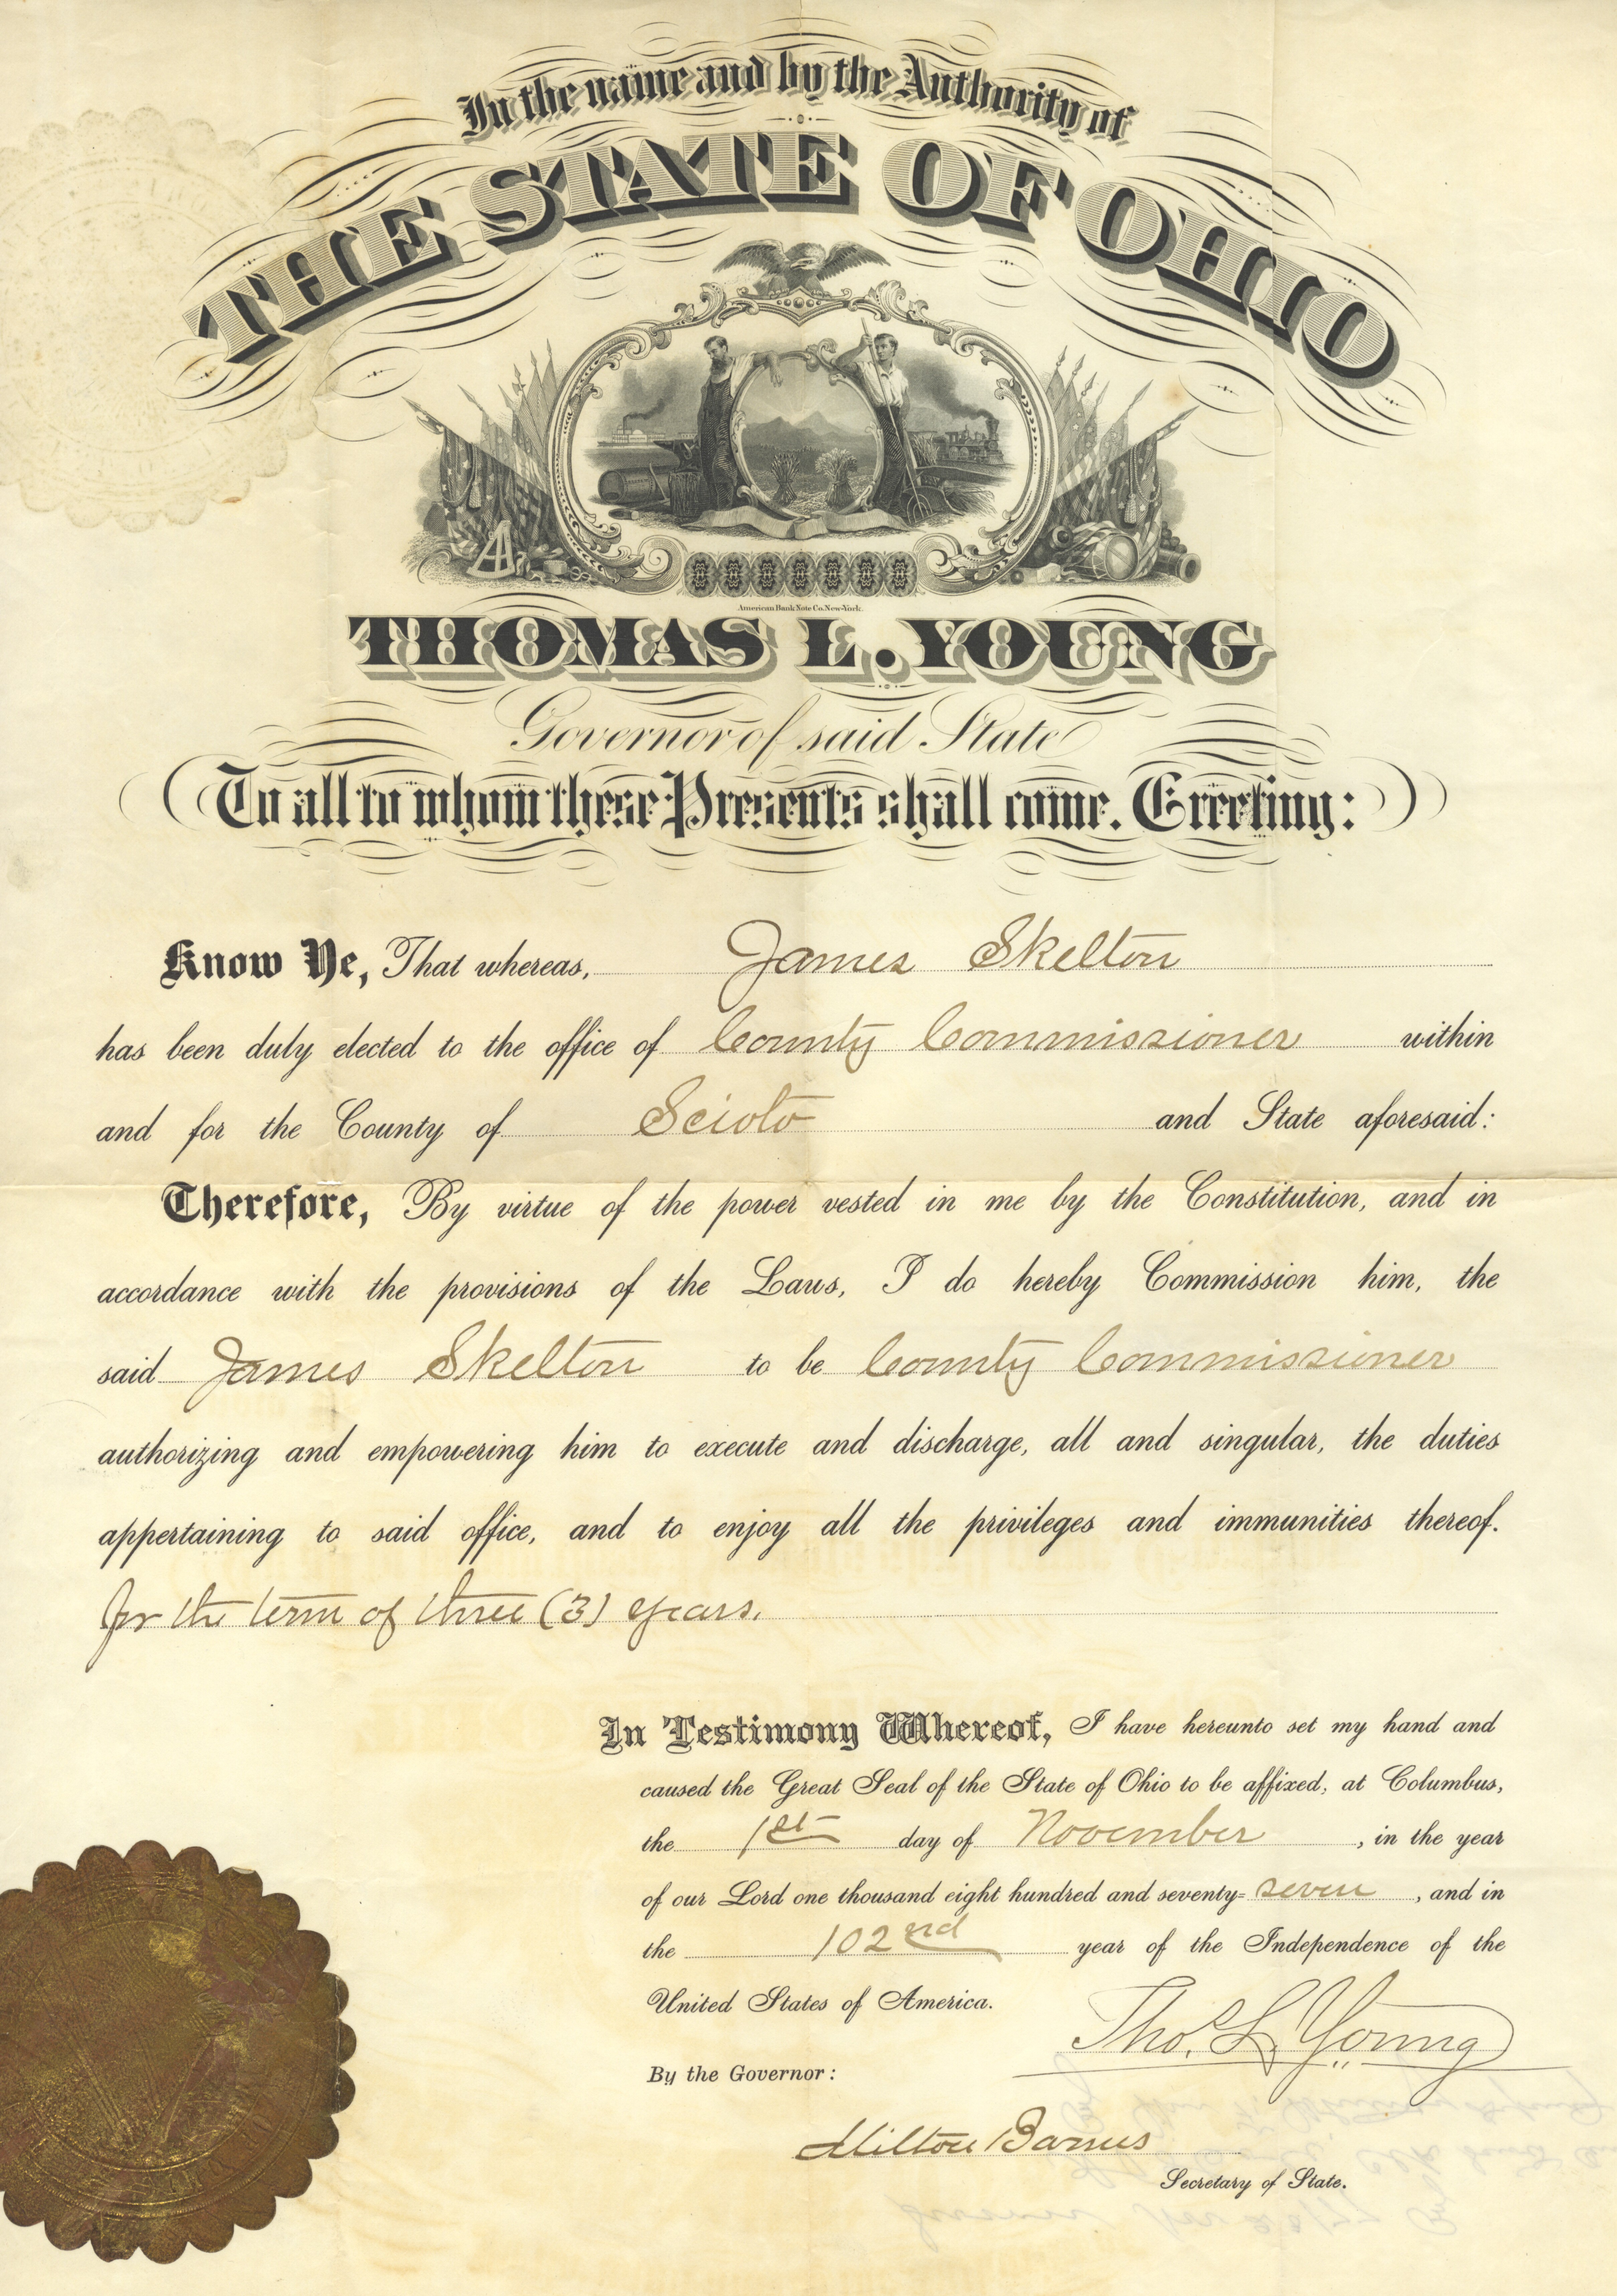 In the name and by the Authority of
THE STATE OF OHIO
American Bank Note Co. New-York.
THOMAS L. YOUNG
Governor of said State
To all to whom these Presents shall come. Greeting:
Know Ye, That whereas, James Skelton
has been duly elected to the office of County Commissioner within
and for the County of Scioto and State aforesaid:
Therefore, By virtue of the power vested in me by the Constitution, and in
accordance with the provisions of the Laws, I do hereby Commission him, the
said James Skelton to be County Commissioner
authorizing and empowering him to execute and discharge, all and singular, the duties
appertaining to said office, and to enjoy all the privileges and immunities thereof.
for the term of three (3) years.
In Testimony Whereof, I have hereunto set my hand and
caused the Great Seal of the State of Ohio to be affixed, at Columbus,
the 1st day of November, in the year
of our Lord one thousand eight hundred and seventy=seven, and in
the 102nd year of the Independence of the
United States of America.
Tho. L. Young
By the Governor:
Milton Barnes
Secretary of State.